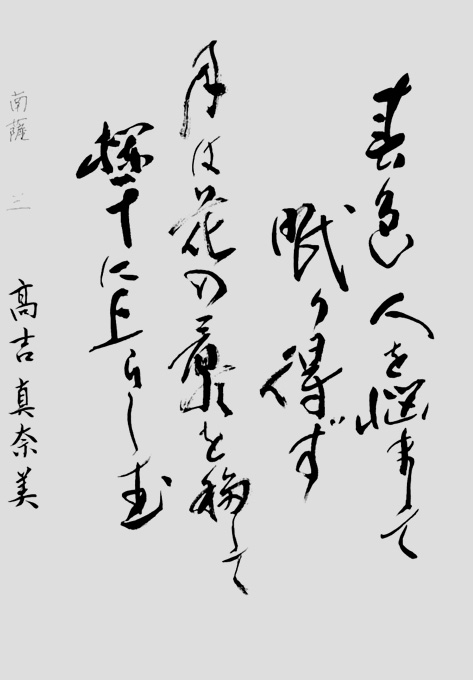 春色人を悩まして
眠り得ず
月は花の影を移して
欄干に上らしむ
南薩 三
高吉真奈美